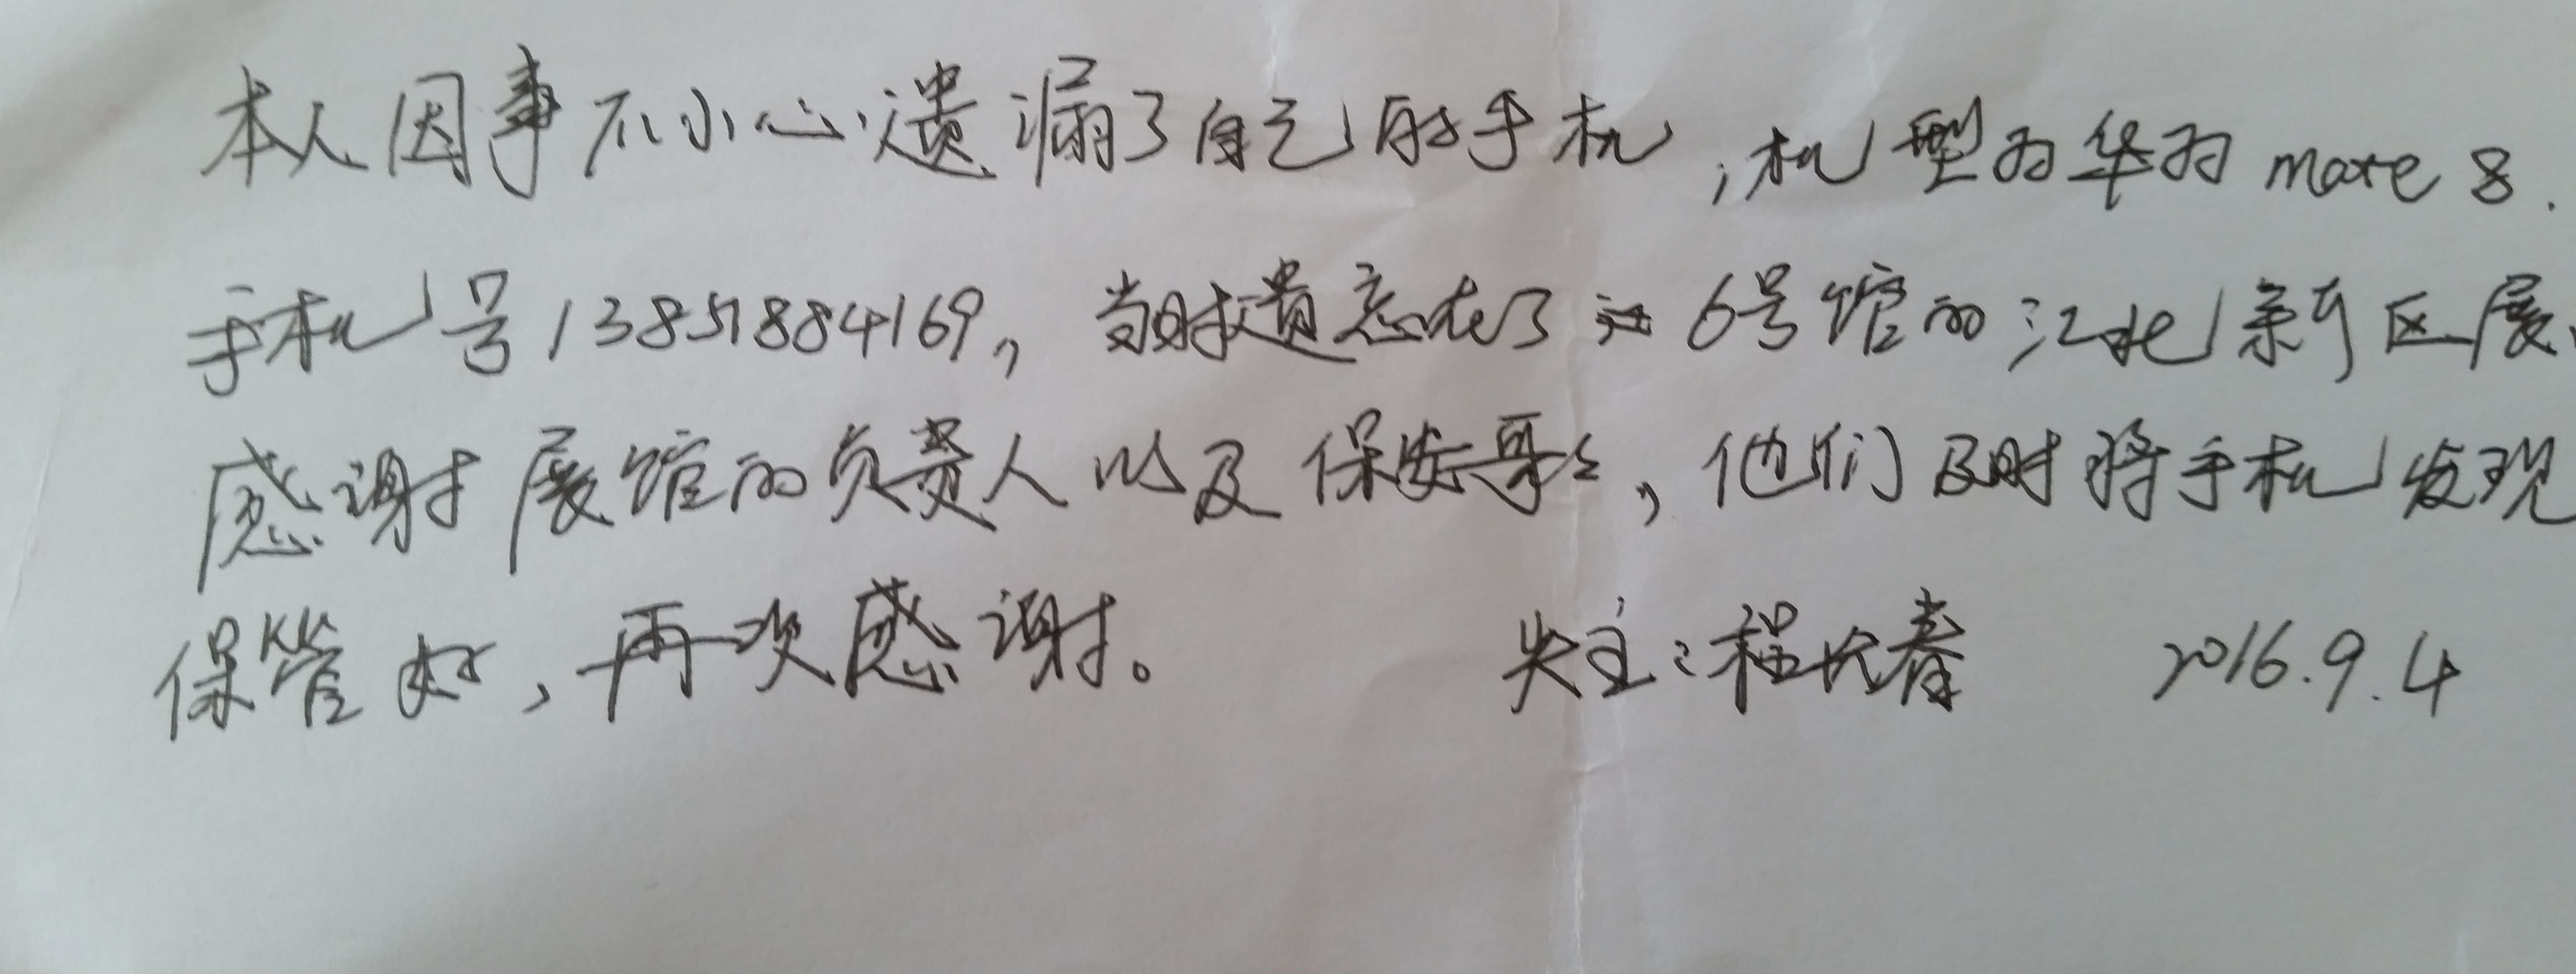 本人因事不小心遗漏了自己的手机,机型为华为mate 8.
手机号13851884169,当时遗忘在了 6号馆的江北新区展
感谢展馆的负责人以及保安哥哥,他们及时将手机发现
保管好,再次感谢。 失主:程长春 2016.9.4